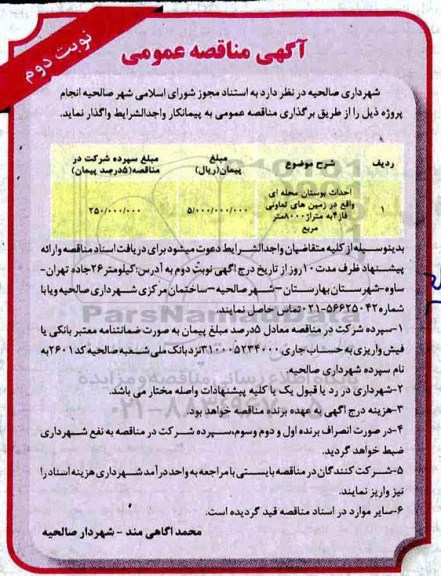 نوبت دوم
آگهی مناقصه عمومی
شهرداری صالحیه در نظر دارد به استناد مجوز شورای اسلامی شهر صالحیه انجام
پروژه ذیل را از طریق برگذاری مناقصه عمومی به پیمانکار واجدالشرایط واگذار نماید.
ردیف شرح موضوع مبلغ پیمان(ریال) مبلغ سپرده شرکت در مناقصه(۵درصد پیمان)
۱ احداث بوستان محله ای واقع در زمین های تعاونی فاز۴به متراژ۸۰۰۰متر مربع ۵/۰۰۰/۰۰۰/۰۰۰ ۲۵۰/۰۰۰/۰۰۰
بدینوسیله از کلیه متقاضیان واجدالشرایط دعوت میشود برای دریافت اسناد مناقصه وارائه
پیشنهاد ظرف مدت ۱۰روز از تاریخ درج آگهی نوبت دوم به آدرس:کیلومتر۲۶جاده تهران-
ساوه-شهرستان بهارستان-شهر صالحیه-ساختمان مرکزی شهرداری صالحیه ویا با
شماره۵۶۶۲۵۰۴۲-۰۲۱تماس حاصل نمایند.
۱-سپرده شرکت در مناقصه معادل ۵درصد مبلغ پیمان به صورت ضمانتنامه معتبر بانکی یا
فیش واریزی به حساب جاری۳۱۰۰۰۵۲۳۴۰۰۰نزدبانک ملی شعبه صالحیه کد۲۶۰۱به
نام سپرده شهرداری صالحیه.
۲-شهرداری در رد یا قبول یک یا کلیه پیشنهادات واصله مختار می باشد.
۳-هزینه درج آگهی به عهده برنده مناقصه خواهد بود.
۴-در صورت انصراف برنده اول و دوم وسوم،سپرده شرکت در مناقصه به نفع شهرداری
ضبط خواهد گردید.
۵-شرکت کنندگان در مناقصه بایستی با مراجعه به واحد درآمد شهرداری هزینه اسناد را
نیز واریز نمایند.
۶-سایر موارد در اسناد مناقصه قید گردیده است.
محمد آگاهی مند - شهردار صالحیه